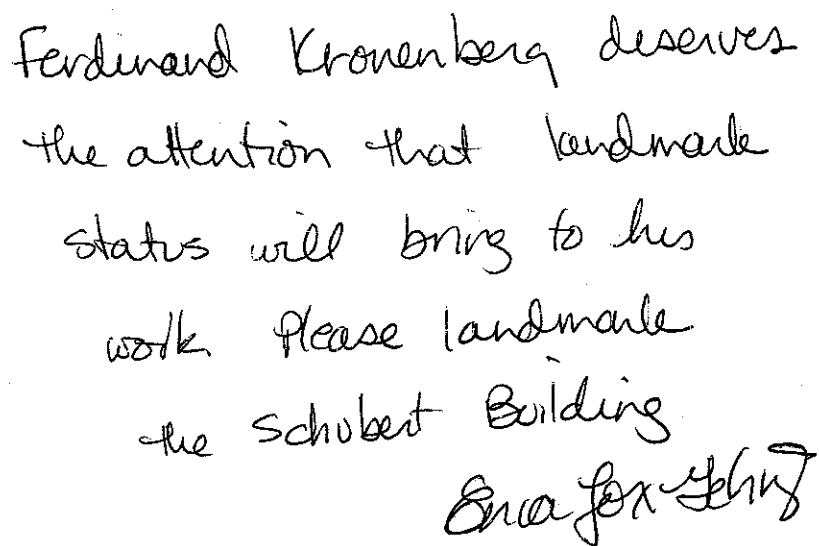 Ferdinand Kronenberg deserves
the attention that landmark
status will bring to his
work Please landmark
the Schubert Building
Erica Fox